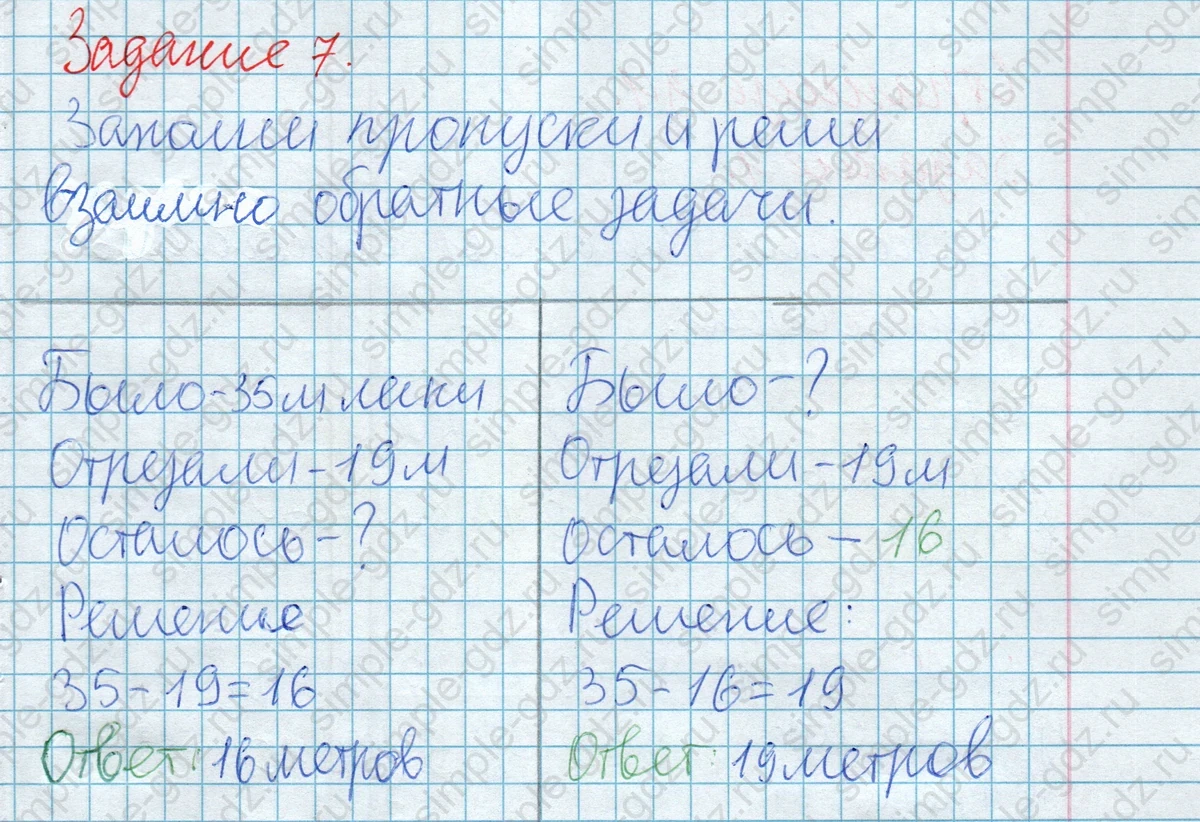 Задание 7.
Заполни пропуски и реши
взаимно обратные задачи.
Было-35м лески
Отрезали-19м
Осталось-?
Решение
35-19=16
Ответ: 16 метров
Было-?
Отрезали-19м
Осталось-16
Решение:
35-16=19
Ответ: 19 метров
simple-gdz.ru